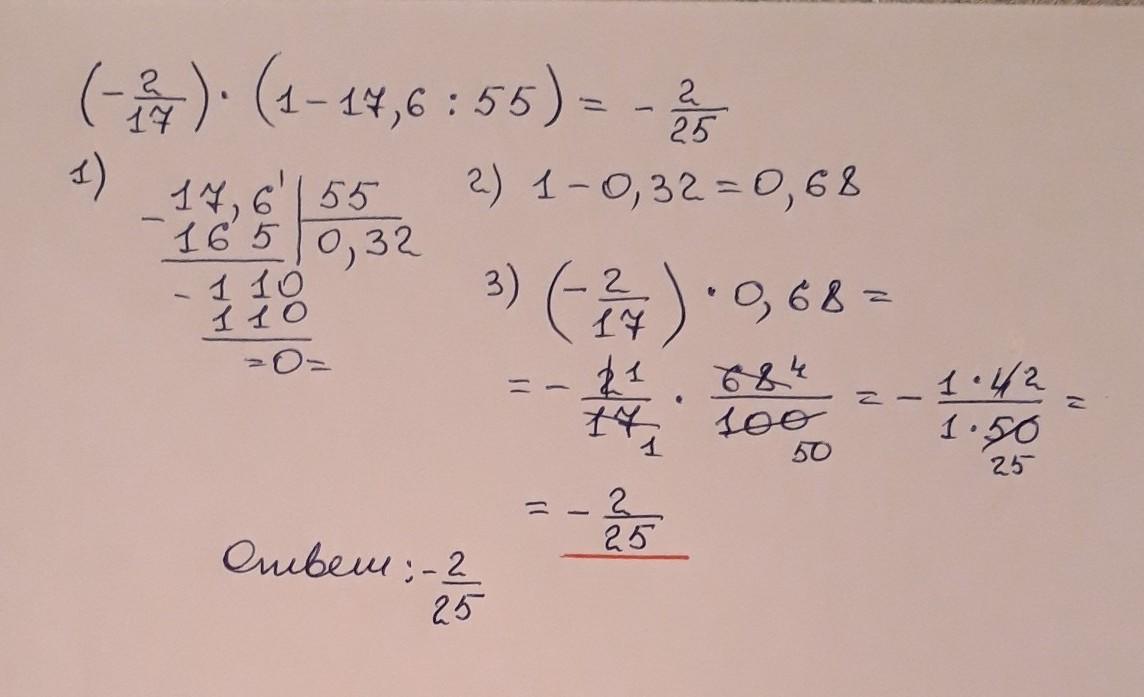 (-2/17) · (1 - 17,6 : 55) = - 2/25
1) 17,6' | 55
- 165 | 0,32
- 110
110
=0=
2) 1 - 0,32 = 0,68
3) (-2/17) · 0,68 =
= - 2 1/17 1 · 68 4/100 50 = - 1 · 4 2/1 · 50 25 =
= - 2/25
Ответ: - 2/25